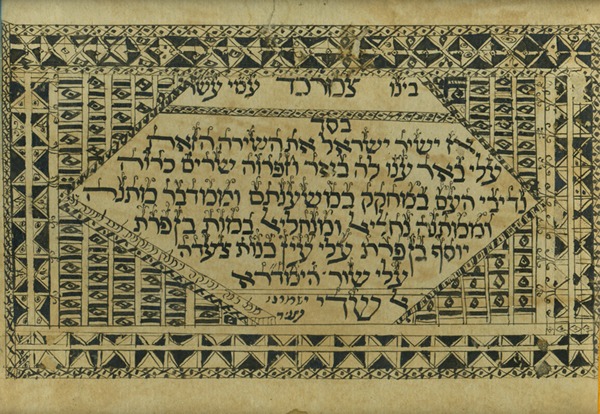 בינו צמרכד עמי
בסד
אז ישיר ישראל את השירה הזאת
עלי באר ענו לה באר חפרוה שרים כרוה
נדיבי העם במחקק במשענתם וממדבר מתנה
וממתנה נחליאל ומנחליאל במות בן פרת
יוסף בן פרת עלי עין בנות צעדה
עלי שור
שדי